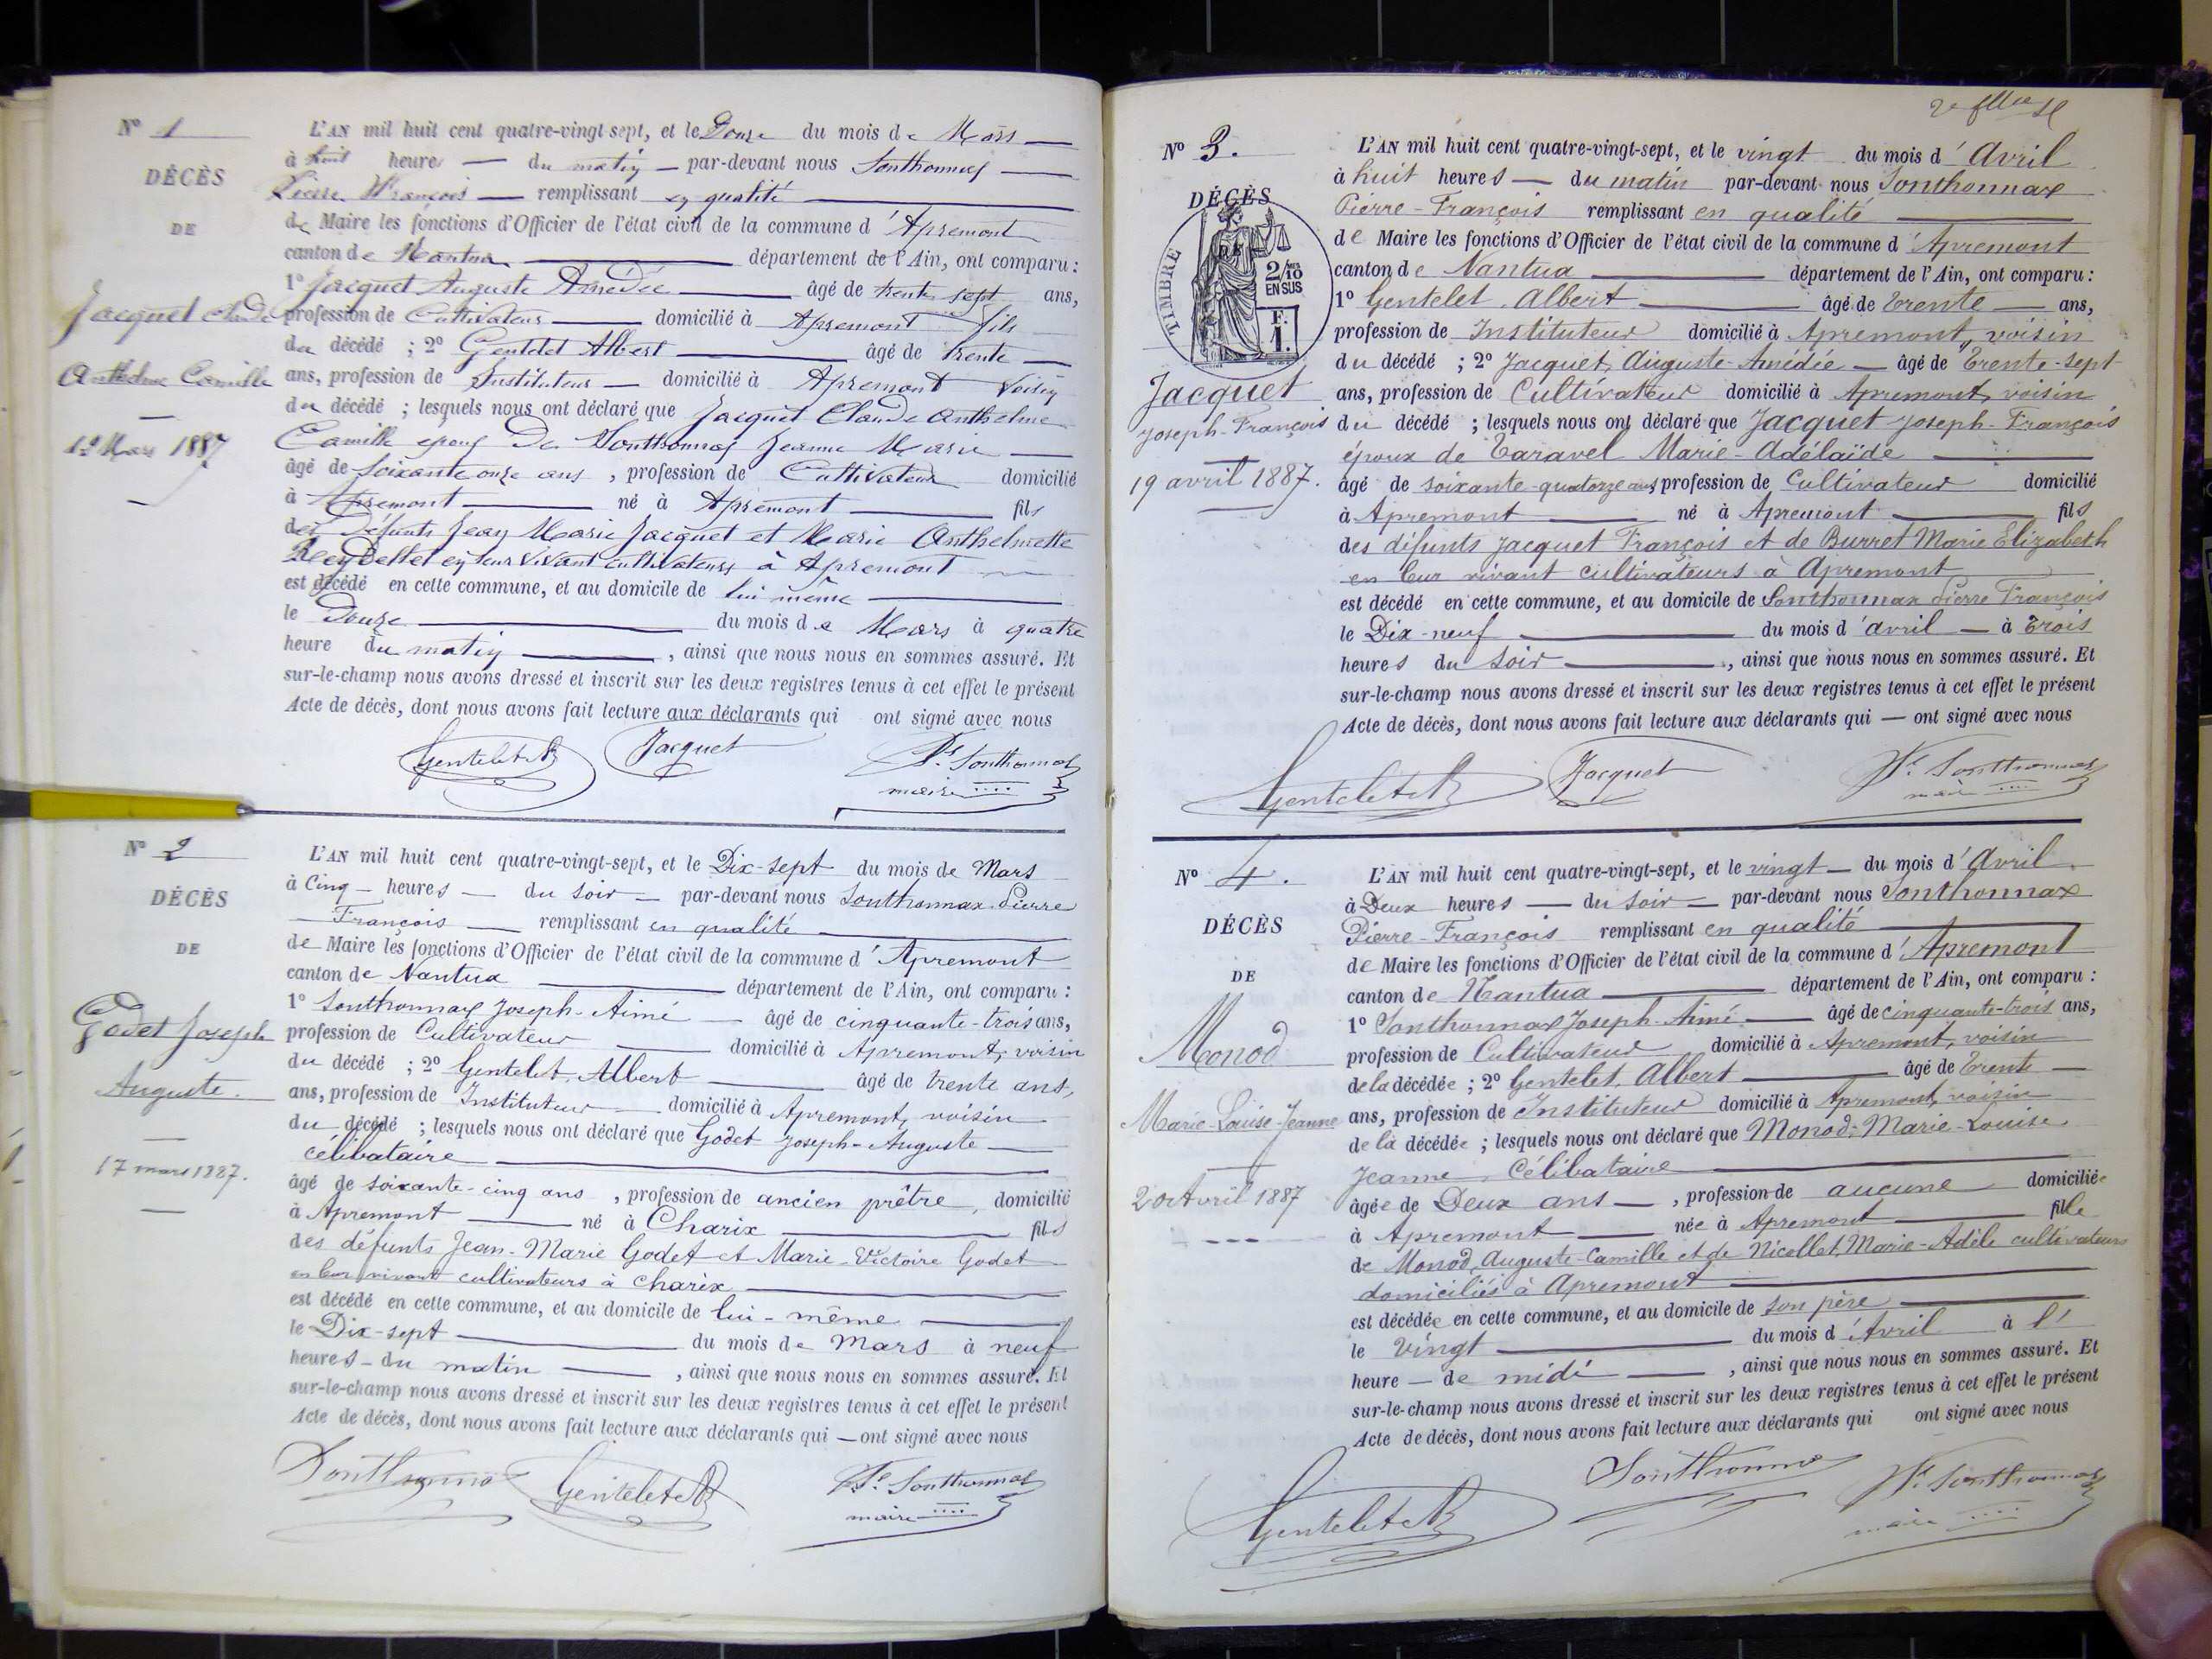 N° 1
DÉCÈS
DE
Jacquet Claude
Anthelme Camille
12 Mars 1887
L'AN mil huit cent quatre-vingt-sept, et le Douze du mois de Mars
à huit heures du matin par-devant nous Sonthonnax
Pierre François remplissant en qualité
de Maire les fonctions d'Officier de l'état civil de la commune d'Apremont
canton de Nantua département de l'Ain, ont comparu :
1° Jacquet Auguste Amédée âgé de trente sept ans,
profession de Cultivateur domicilié à Apremont fils
du décédé ; 2° Gentelet Albert âgé de trente
ans, profession de Instituteur domicilié à Apremont Voisin
du décédé ; lesquels nous ont déclaré que Jacquet Claude Anthelme
Camille époux De Sonthonnax Jeanne Marie
âgé de Soixante onze ans, profession de Cultivateur domicilié
à Apremont né à Apremont fils
des Défunts Jean Marie Jacquet et Marie Anthelmette
Reydellet en leur vivant cultivateurs à Apremont
est décédé en cette commune, et au domicile de lui même
le Douze du mois de Mars à quatre
heure du matin, ainsi que nous nous en sommes assuré. Et
sur-le-champ nous avons dressé et inscrit sur les deux registres tenus à cet effet le présent
Acte de décès, dont nous avons fait lecture aux déclarants qui ont signé avec nous
Gentelet A Jacquet Fs Sonthonnax
maire
N° 2
DÉCÈS
DE
Godet Joseph
Auguste.
17 mars 1887.
L'AN mil huit cent quatre-vingt-sept, et le Dix-sept du mois de Mars
à Cinq heures du soir par-devant nous Sonthonnax Pierre
François remplissant en qualité
de Maire les fonctions d'Officier de l'état civil de la commune d'Apremont
canton de Nantua département de l'Ain, ont comparu :
1° Sonthonnax Joseph-Aimé âgé de cinquante-trois ans,
profession de Cultivateur domicilié à Apremont, voisin
du décédé ; 2° Gentelet, Albert âgé de trente ans,
ans, profession de Instituteur domicilié à Apremont, voisin
du décédé ; lesquels nous ont déclaré que Godet Joseph-Auguste
célibataire
âgé de soixante-cinq ans, profession de ancien prêtre, domicilié
à Apremont né à Charix fils
des défunts Jean-Marie Godet et Marie-Victoire Godet
en leur vivant cultivateurs à Charix
est décédé en cette commune, et au domicile de lui-même
le Dix-sept du mois de Mars à neuf
heures du matin, ainsi que nous nous en sommes assuré. Et
sur-le-champ nous avons dressé et inscrit sur les deux registres tenus à cet effet le présent
Acte de décès, dont nous avons fait lecture aux déclarants qui — ont signé avec nous
Sonthonnax Gentelet A Fs Sonthonnax
maire
N° 3.
DÉCÈS
TIMBRE
2/10 EN SUS
F. 1.
Jacquet
Joseph-François
19 avril 1887.
L'AN mil huit cent quatre-vingt-sept, et le vingt du mois d'Avril
à huit heures du matin par-devant nous Sonthonnax
Pierre-François remplissant en qualité
de Maire les fonctions d'Officier de l'état civil de la commune d'Apremont
canton de Nantua département de l'Ain, ont comparu :
1° Gentelet, Albert âgé de trente ans,
profession de Instituteur domicilié à Apremont, voisin
du décédé ; 2° Jacquet, Auguste-Amédée âgé de trente-sept
ans, profession de Cultivateur domicilié à Apremont, voisin
du décédé ; lesquels nous ont déclaré que Jacquet Joseph-François
époux de Taravel Marie-Adélaïde
âgé de soixante-quatorze ans, profession de Cultivateur domicilié
à Apremont né à Apremont fils
des défunts Jacquet François et de Burret Marie Elizabeth
en leur vivant cultivateurs à Apremont
est décédé en cette commune, et au domicile de Sonthonnax Pierre François
le Dix-neuf du mois d'avril à trois
heures du soir, ainsi que nous nous en sommes assuré. Et
sur-le-champ nous avons dressé et inscrit sur les deux registres tenus à cet effet le présent
Acte de décès, dont nous avons fait lecture aux déclarants qui — ont signé avec nous
Gentelet A Jacquet Fs Sonthonnax
maire
N° 4.
DÉCÈS
DE
Monod
Marie-Louise-Jeanne
20 Avril 1887
L'AN mil huit cent quatre-vingt-sept, et le vingt du mois d'Avril
à Deux heures du soir par-devant nous Sonthonnax
Pierre-François remplissant en qualité
de Maire les fonctions d'Officier de l'état civil de la commune d'Apremont
canton de Nantua département de l'Ain, ont comparu :
1° Sonthonnax Joseph-Aimé âgé de cinquante-trois ans,
profession de Cultivateur domicilié à Apremont, voisin
de la décédée ; 2° Gentelet, Albert âgé de trente
ans, profession de Instituteur domicilié à Apremont, voisin
de la décédée ; lesquels nous ont déclaré que Monod, Marie-Louise
Jeanne, Célibataire
âgée de Deux ans, profession de aucune domiciliée
à Apremont née à Apremont fille
de Monod, Auguste-Camille et de Nicollet, Marie-Adèle cultivateurs
domiciliés à Apremont
est décédée en cette commune, et au domicile de son père
le vingt du mois d'Avril à l'
heure de midi, ainsi que nous nous en sommes assuré. Et
sur-le-champ nous avons dressé et inscrit sur les deux registres tenus à cet effet le présent
Acte de décès, dont nous avons fait lecture aux déclarants qui ont signé avec nous
Gentelet A Sonthonnax Fs Sonthonnax
maire